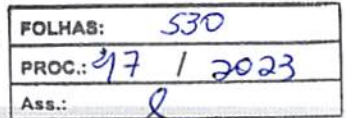 FOLHAS: 530
PROC.: 17 / 2023
Ass.: